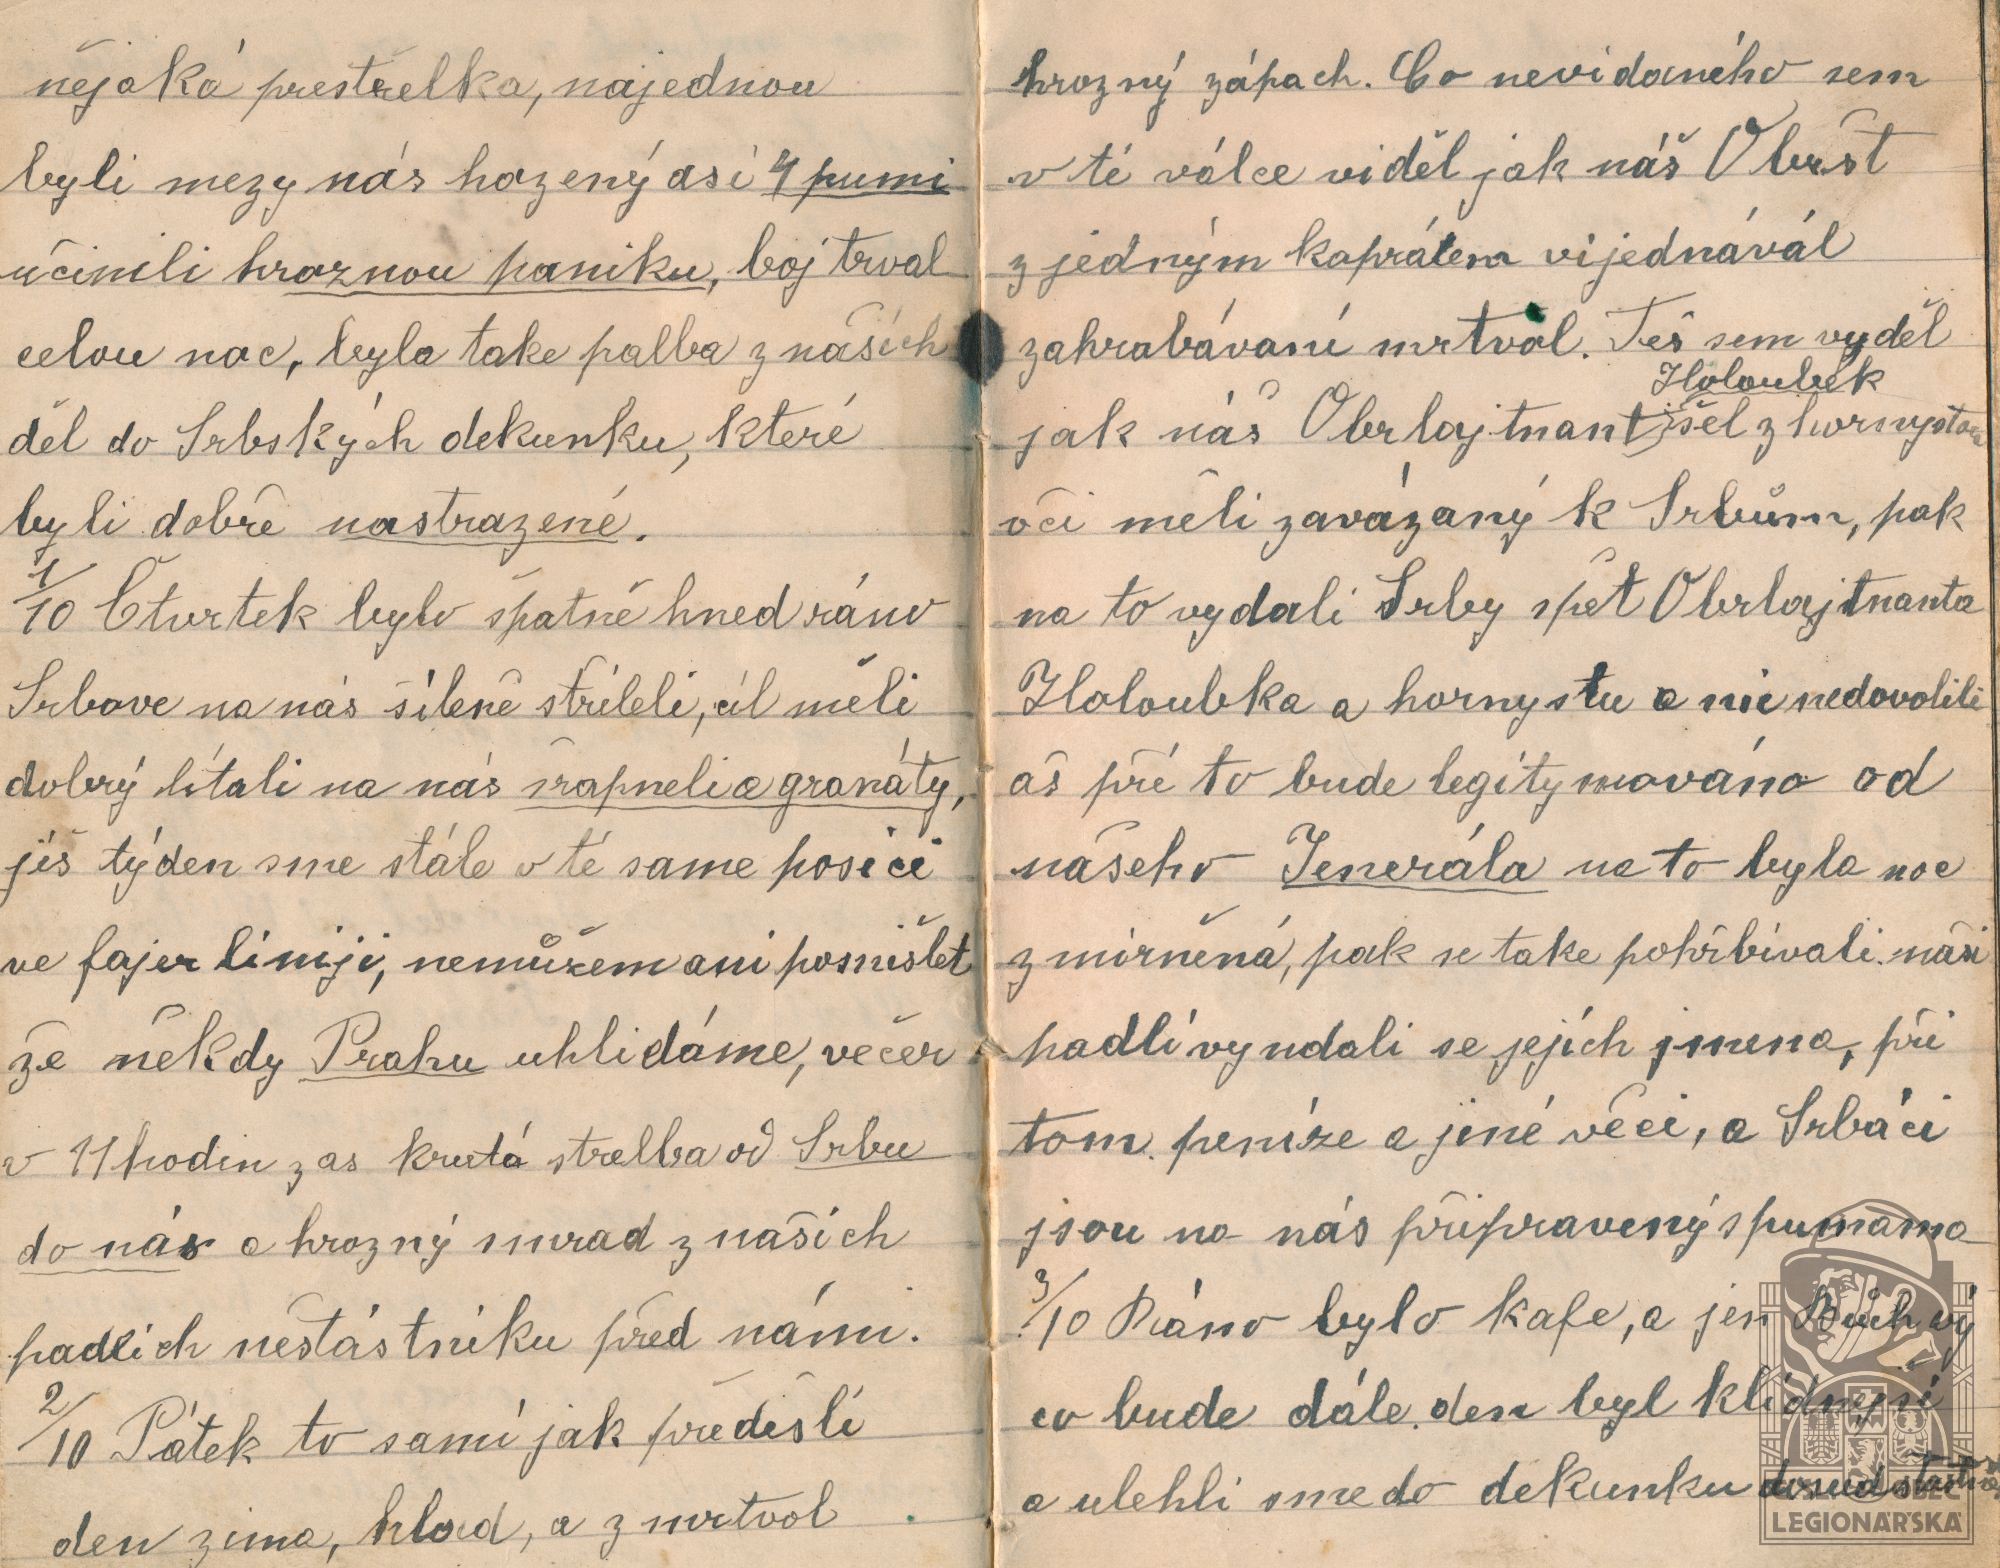 nějaká prestrelka, najednou
byli mezy nás hozený asi 4 pumi
učinili hroznou paniku, boj trval
celou noc, byla take palba z našich
děl do Srbských dekunku, které
byli dobře nastrazené.
1/10 Čtvrtek bylo špatné hned ráno
Srbove na nás šíleně stríleli, cíl měli
dobrý lítali na nás srapneli a granáty,
jiš týden sme stále v té same posici
ve fajer liniji, nemůžem ani posmišlet
že někdy Prahu uhlidáme, večer
v 11 hodin zas krutá strelba od Srbu
do nás a hrozný smrad z našich
padlich nešťástníku před námi.
2/10 Pátek to samí jak předešlí
den zima, hlad, a z mrtvol
hrozný zápach. Co nevidaného sem
v té válce viděl jak náš Obršt
z jedným kaprálem vijednávál
zahrabávaní mrtvol. Téš sem vyděl
Holoubek
jak náš Obrlajtnant išel z hornystou
oči měli zavázaný k Srbům, pak
na to vydali Srby spět Obrlajtnanta
Holoubka a hornystu a nic nedovolili
aš pře to bude legitymováno od
našeho Jenerála na to byla noc
zmirněná, pak se take pohřbívali naši
padlí vyndali se jejich jmena, při
tom peníze a jiné věci, a Srbáci
jsou na nás připravený s pumama
3/10 Ráno bylo kafe, a jen Bůh ví
co bude dále. den byl klidnejší
a ulehli sme do dekunku
LEGIONÁŘSKÁ